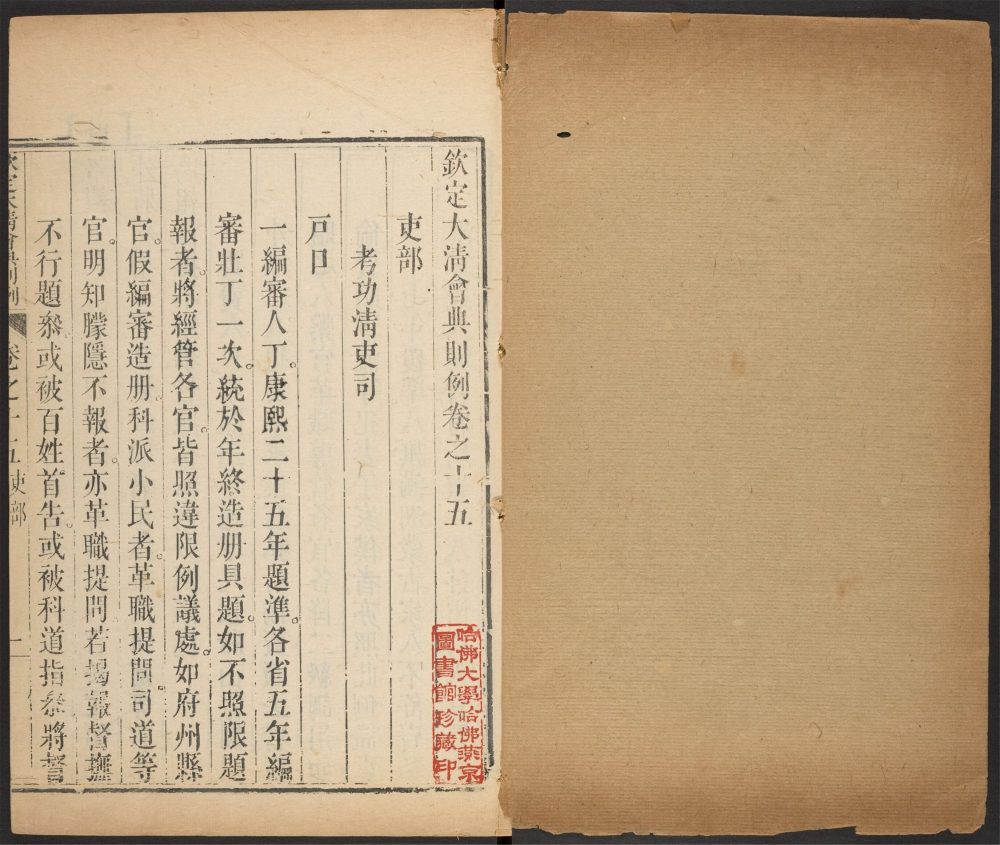 欽定大清會典則例卷之十五
吏部
考功清吏司
戸口
一編審人丁。康熙二十五年題準。各省五年編
審壯丁一次。統於年終造册具題。如不照限題
報者。將經管各官。皆照違限例議處。如府州縣
官。假編審造册。科派小民者。革職提問。司道等
官。明知朦隱不報者。亦革職提問。若揭報督撫
不行題叅。或被百姓首告。或被科道指叅。將督
欽定大清會典則例
卷之十五吏部
一
哈佛大學哈佛燕京
圖書館珍藏印